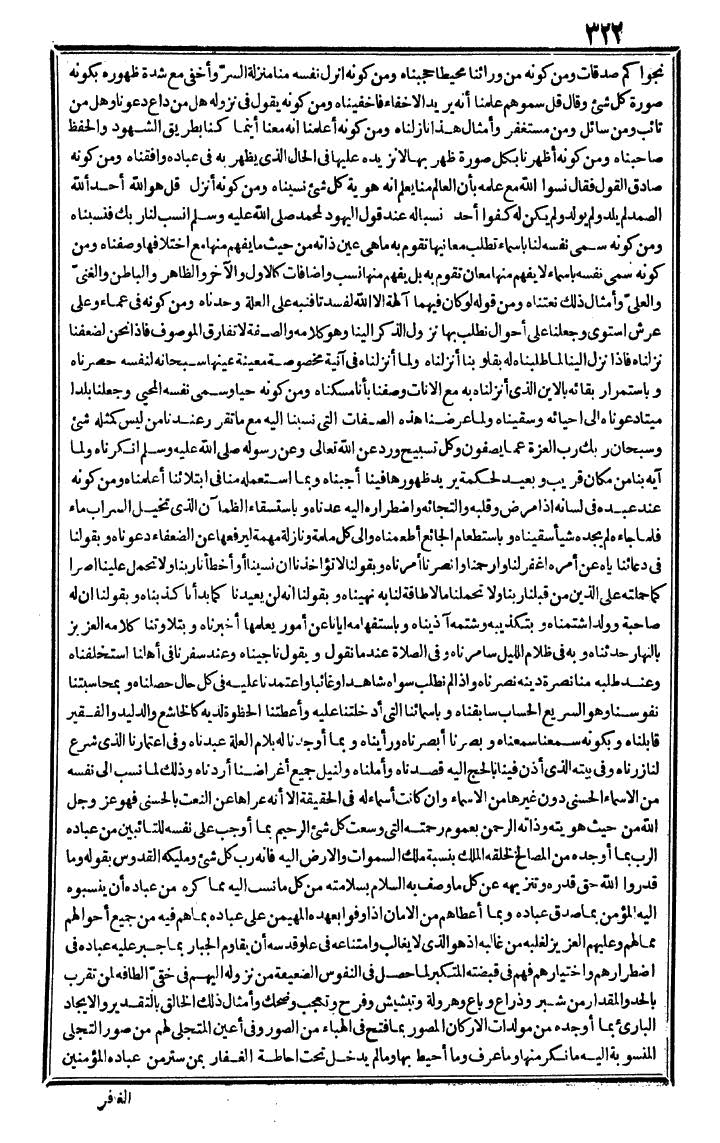 ٣٢٢
نجواكم صدقات ومن كونه من ورائنا محيطا حجبناه ومن كونه انزل نفسه منا منزلة السرّ وأخفى مع شدة ظهوره بكونه
صورة كل شئ وقال قل سموهم علمنا أنه يريد الاخفاء فاخفيناه ومن كونه يقول فى نزوله هل من داع دعوناه وهل من
تائب ومن سائل ومن مستغفر وأمثال هذا نازلناه ومن كونه أعلمنا انه معنا أينما كنا بطريق الشهود والحفظ
صاحبناه ومن كونه أظهرنا بكل صورة ظهر بها لا نزيده عليها فى الحال الذى يظهر به فى عباده وافقناه ومن كونه
صادق القول فقال نسوا الله مع علمه بأن العالم منا يعلم انه هوية كل شئ نسيناه ومن كونه أنزل قل هو الله أحد ألله
الصمد لم يلد ولم يولد ولم يكن له كفوا أحد نسبا له عند قول اليهود لمحمد صلى الله عليه وسلم انسب لنا ربك فنسبناه
ومن كونه سمى نفسه لنا باسماء تطلب معانيها تقوم به ماهى عين ذاته من حيث ما يفهم منها مع اختلافها وصفناه ومن
كونه سمى نفسه باسماء لا يفهم منها معان تقوم به بل يفهم منها نسب واضافات كالاول والآخر والظاهر والباطن والغنىّ
والعلىّ وأمثال ذلك نعتناه ومن قوله لو كان فيهما آلهة الا الله لفسدتا فنبه على العلة وحدناه ومن كونه فى عماء وعلى
عرش استوى وجعلنا على أحوال نطلب بها نزول الذكر الينا وهو كلامه والصفة لا تفارق الموصوف فاذا نحن لضعفنا
نزلناه فاذا نزل الينا لما طلبناه له بقلوبنا أنزلناه ولما أنزلناه فى آنية مخصوصة معينة عينها سبحانه لنفسه حصرناه
وباستمرار بقائه بالاين الذى أنزلناه به مع الانات وصفنا بأنا مسكناه ومن كونه حيا وسمى نفسه المحيى وجعلنا بلدا
ميتا دعوناه الى احيائه وسقيناه ولما عرضنا هذه الصفات التى نسبنا اليه مع ما تقرر وعندنا من ليس كمثله شئ
وسبحان ربك رب العزة عما يصفون وكل تسبيح ورد عن الله تعالى وعن رسوله صلى الله عليه وسلم انكرناه ولما
آيه بنا من مكان قريب وبعيد لحكمة يريد ظهورها فينا أجبناه وبما استعمله منا فى ابتلائنا أعلمناه ومن كونه
عند عبده فى لسانه اذا مرض وقلبه والتجائه واضطراره اليه عدناه وباستسقاء الظمآن الذى تخيل السراب ماء
فلما جاءه لم يجده شيأ سقيناه وباستطعام الجائع أطعمناه والى كل ملمة ونازلة مهمة ليرفعها عن الضعفاء دعوناه وبقولنا
فى دعائنا ياه عن أمره اغفر لنا وارحمنا وانصرنا أمرناه وبقولنا لا تؤاخذنا ان نسينا أو أخطأنا ربنا ولا تحمل علينا اصرا
كما حملته على الذين من قبلنا ربنا ولا تحملنا ما لا طاقة لنا به نهيناه وبقولنا انه لن يعيدنا كما بدأنا كذبناه وبقولنا ان له
صاحبة وولدا شتمناه وبتكذيبه وشتمه آذيناه وباستفهامه ايانا عن أمور يعلمها أخبرناه وبتلاوتنا كلامه العزيز
بالنهار حدثناه وبه فى ظلام الليل سامرناه وفى الصلاة عند ما نقول ويقول ناجيناه وعند سفرنا فى أهلنا استخلفناه
وعند طلبه منا نصرة دينه نصرناه واذا لم نطلب سواه شاهدا وغائبا واعتمدنا عليه فى كل حال حصلناه وبمحاسبتنا
نفوسنا وهو السريع الحساب سابقناه وباسمائنا التى أدخلتنا عليه وأعطتنا الحظوة لديه كالخاشع والذليل والفقير
قابلناه وبكونه سمعنا سمعناه وبصرنا أبصرناه ورأيناه وبما أوجدنا له بلام العلة عبدناه وفى اعتمارنا الذى شرع
لنا زرناه وفى بيته الذى أذن فينا بالحج اليه قصدناه وأملناه ولنيل جميع أغراضنا أردناه وذلك لما نسب الى نفسه
من الاسماء الحسنى دون غيرها من الاسماء وان كانت أسماء له فى الحقيقة الا أنه عراها عن النعت بالحسنى فهو عز وجل
الله من حيث هويته وذاته الرحمن بعموم رحمته التى وسعت كل شئ الرحيم بما أوجب على نفسه للتائبين من عباده
الرب بما أوجده من المصالح لخلقه الملك بنسبة ملك السموات والارض اليه فانه رب كل شئ ومليكه القدوس بقوله وما
قدروا الله حق قدره وتنزيهه عن كل ما وصف به السلام بسلامته من كل ما نسب اليه مما كره من عباده أن ينسبوه
اليه المؤمن بما صدق عباده وبما أعطاهم من الامان اذا وفوا بعهده المهيمن على عباده بما هم فيه من جميع أحوالهم
مما لهم وعليهم العزيز لغلبه من غالبه اذ هو الذى لا يغالب وامتناعه فى علو قدسه أن يقاوم الجبار بما جبر عليه عباده فى
اضطرارهم واختيارهم فهم فى قبضته المتكبر لما حصل فى النفوس الضعيفة من نزوله اليهم فى خفىّ الطافه لمن تقرب
بالحد والمقدار من شبر وذراع وباع وهرولة وتبشبش وفرح وتعجب وضحك وأمثال ذلك الخالق بالتقدير والايجاد
البارئ بما أوجده من مولدات الاركان المصور بما فتح فى الهباء من الصور وفى أعين المتجلى لهم من صور التجلى
المنسوبة اليه ما نكر منها وما عرف وما أحيط بها وما لم يدخل تحت احاطة الغفار بمن ستر من عباده المؤمنين
الغافر